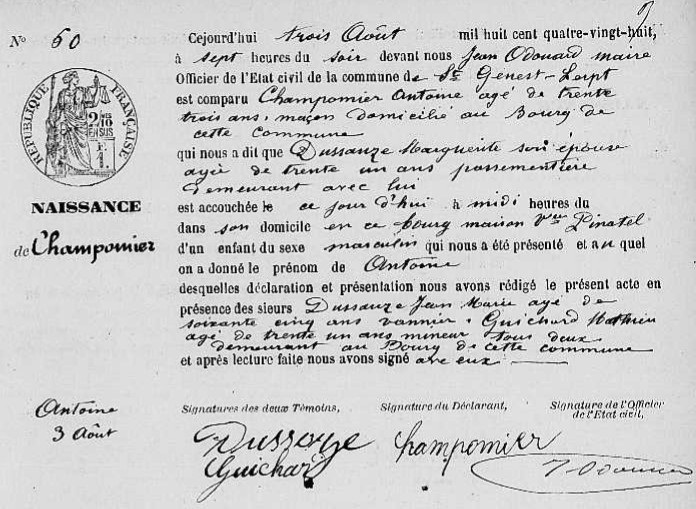 No 60
Cejourd'hui trois Août mil huit cent quatre-vingt-huit,
à sept heures du soir devant nous Jean Odouard maire
Officier de l'Etat civil de la commune de St Genest-Lerpt
est comparu Champomier Antoine agé de trente
trois ans, maçon domicilié au Bourg de
cette commune
qui nous a dit que Dussauze Marguerite son épouse
agée de trente un ans passementière
demeurant avec lui
est accouchée le ce jour d'hui à midi heures du
dans son domicile en ce bourg maison Vve Pinatel
d'un enfant du sexe masculin qui nous a été présenté et au quel
on a donné le prénom de Antoine
desquelles déclaration et présentation nous avons rédigé le présent acte en
présence des sieurs Dussauze Jean Marie agé de
soixante cinq ans vannier, Guichard Mathieu
agé de trente un ans mineur tous deux
demeurant au Bourg de cette commune
et après lecture faite nous avons signé avec eux
REPUBLIQUE FRANÇAISE
NAISSANCE
de Champomier
Antoine
3 Août
Signatures des deux Témoins,
Signature du Déclarant,
Signature de l'Officier
de l'Etat civil,
Dussauze
Guichard
Champomier